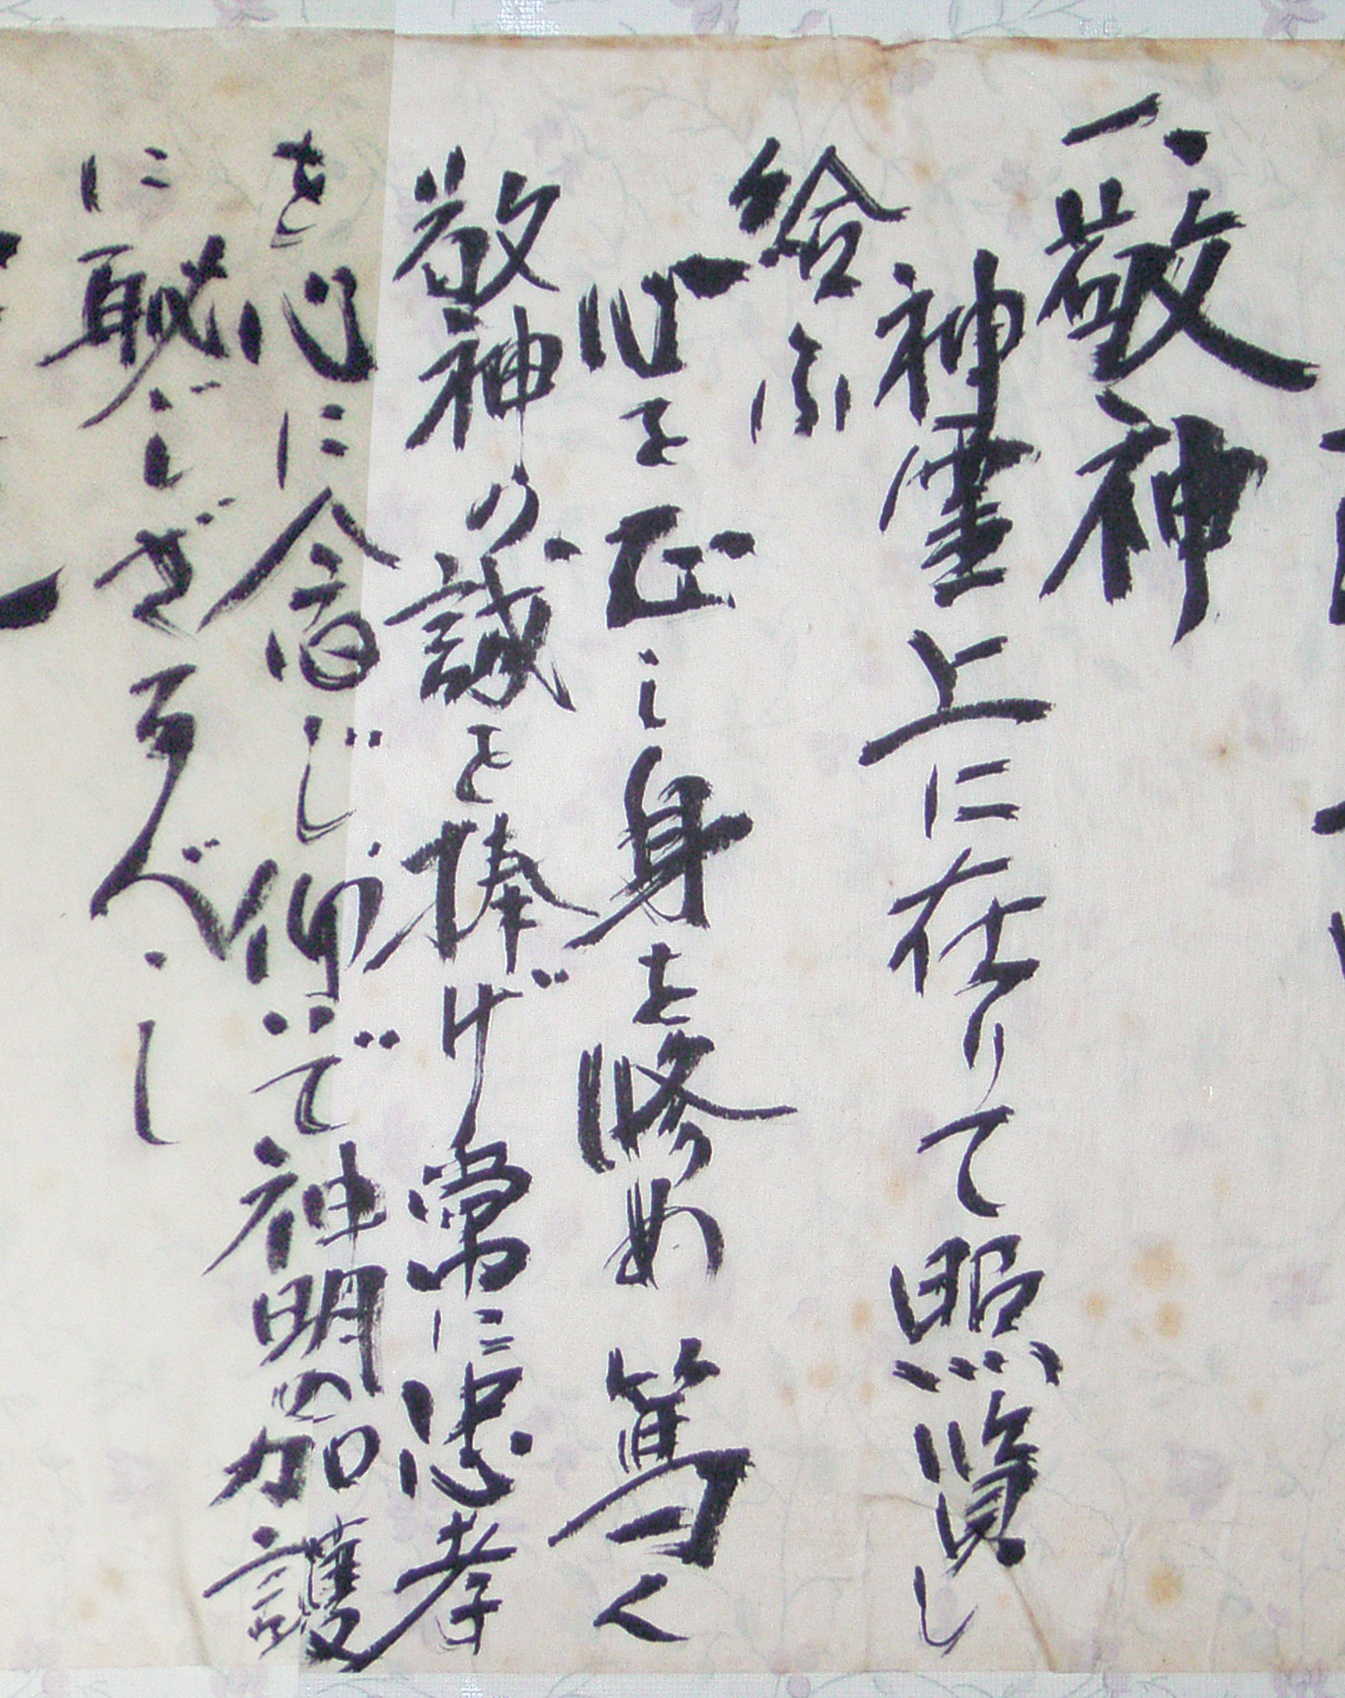 一、敬神
神霊上に在りて照覧し
給ふ
心を正し身を修め篤く
敬神の誠を捧げ常に忠孝
を心に念じ仰いで神明の加護
に恥じざるべし